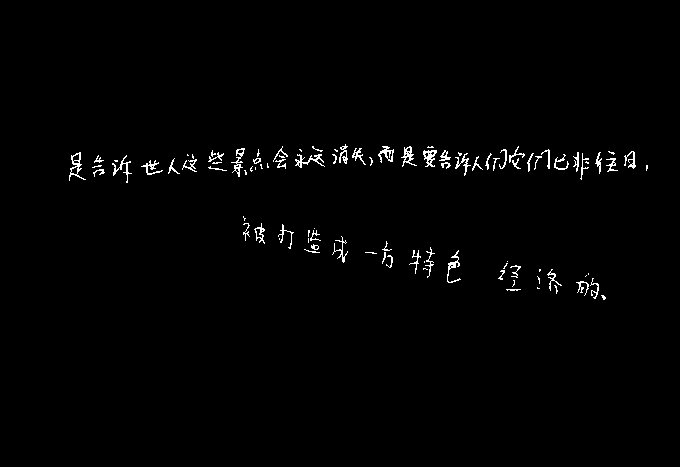 是告诉世人这些景点会永远消失,而是要告诉人们它们已非往日,
被打造成一方特色 经济的、